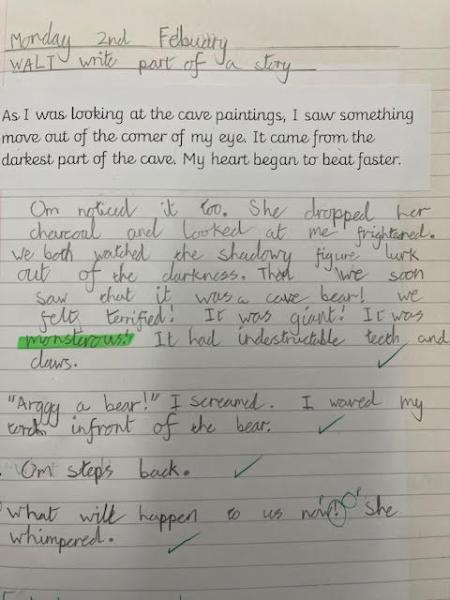 Monday 2nd Febuary
WALT write part of a story
As I was looking at the cave paintings, I saw something
move out of the corner of my eye. It came from the
darkest part of the cave. My heart began to beat faster.
Om noticed it too. She dropped her
charcoal and looked at me frightened.
We both watched the shadowy figure lurk
out of the darkness. Then we soon
saw that it was a cave bear! We
felt terrified! It was giant! It was
monsterous! It had indestructable teeth and
claws.
"Arggg a bear!" I screamed. I waved my
torch infront of the bear.
Om steps back.
"What will happen to us now!?" She
whimpered.